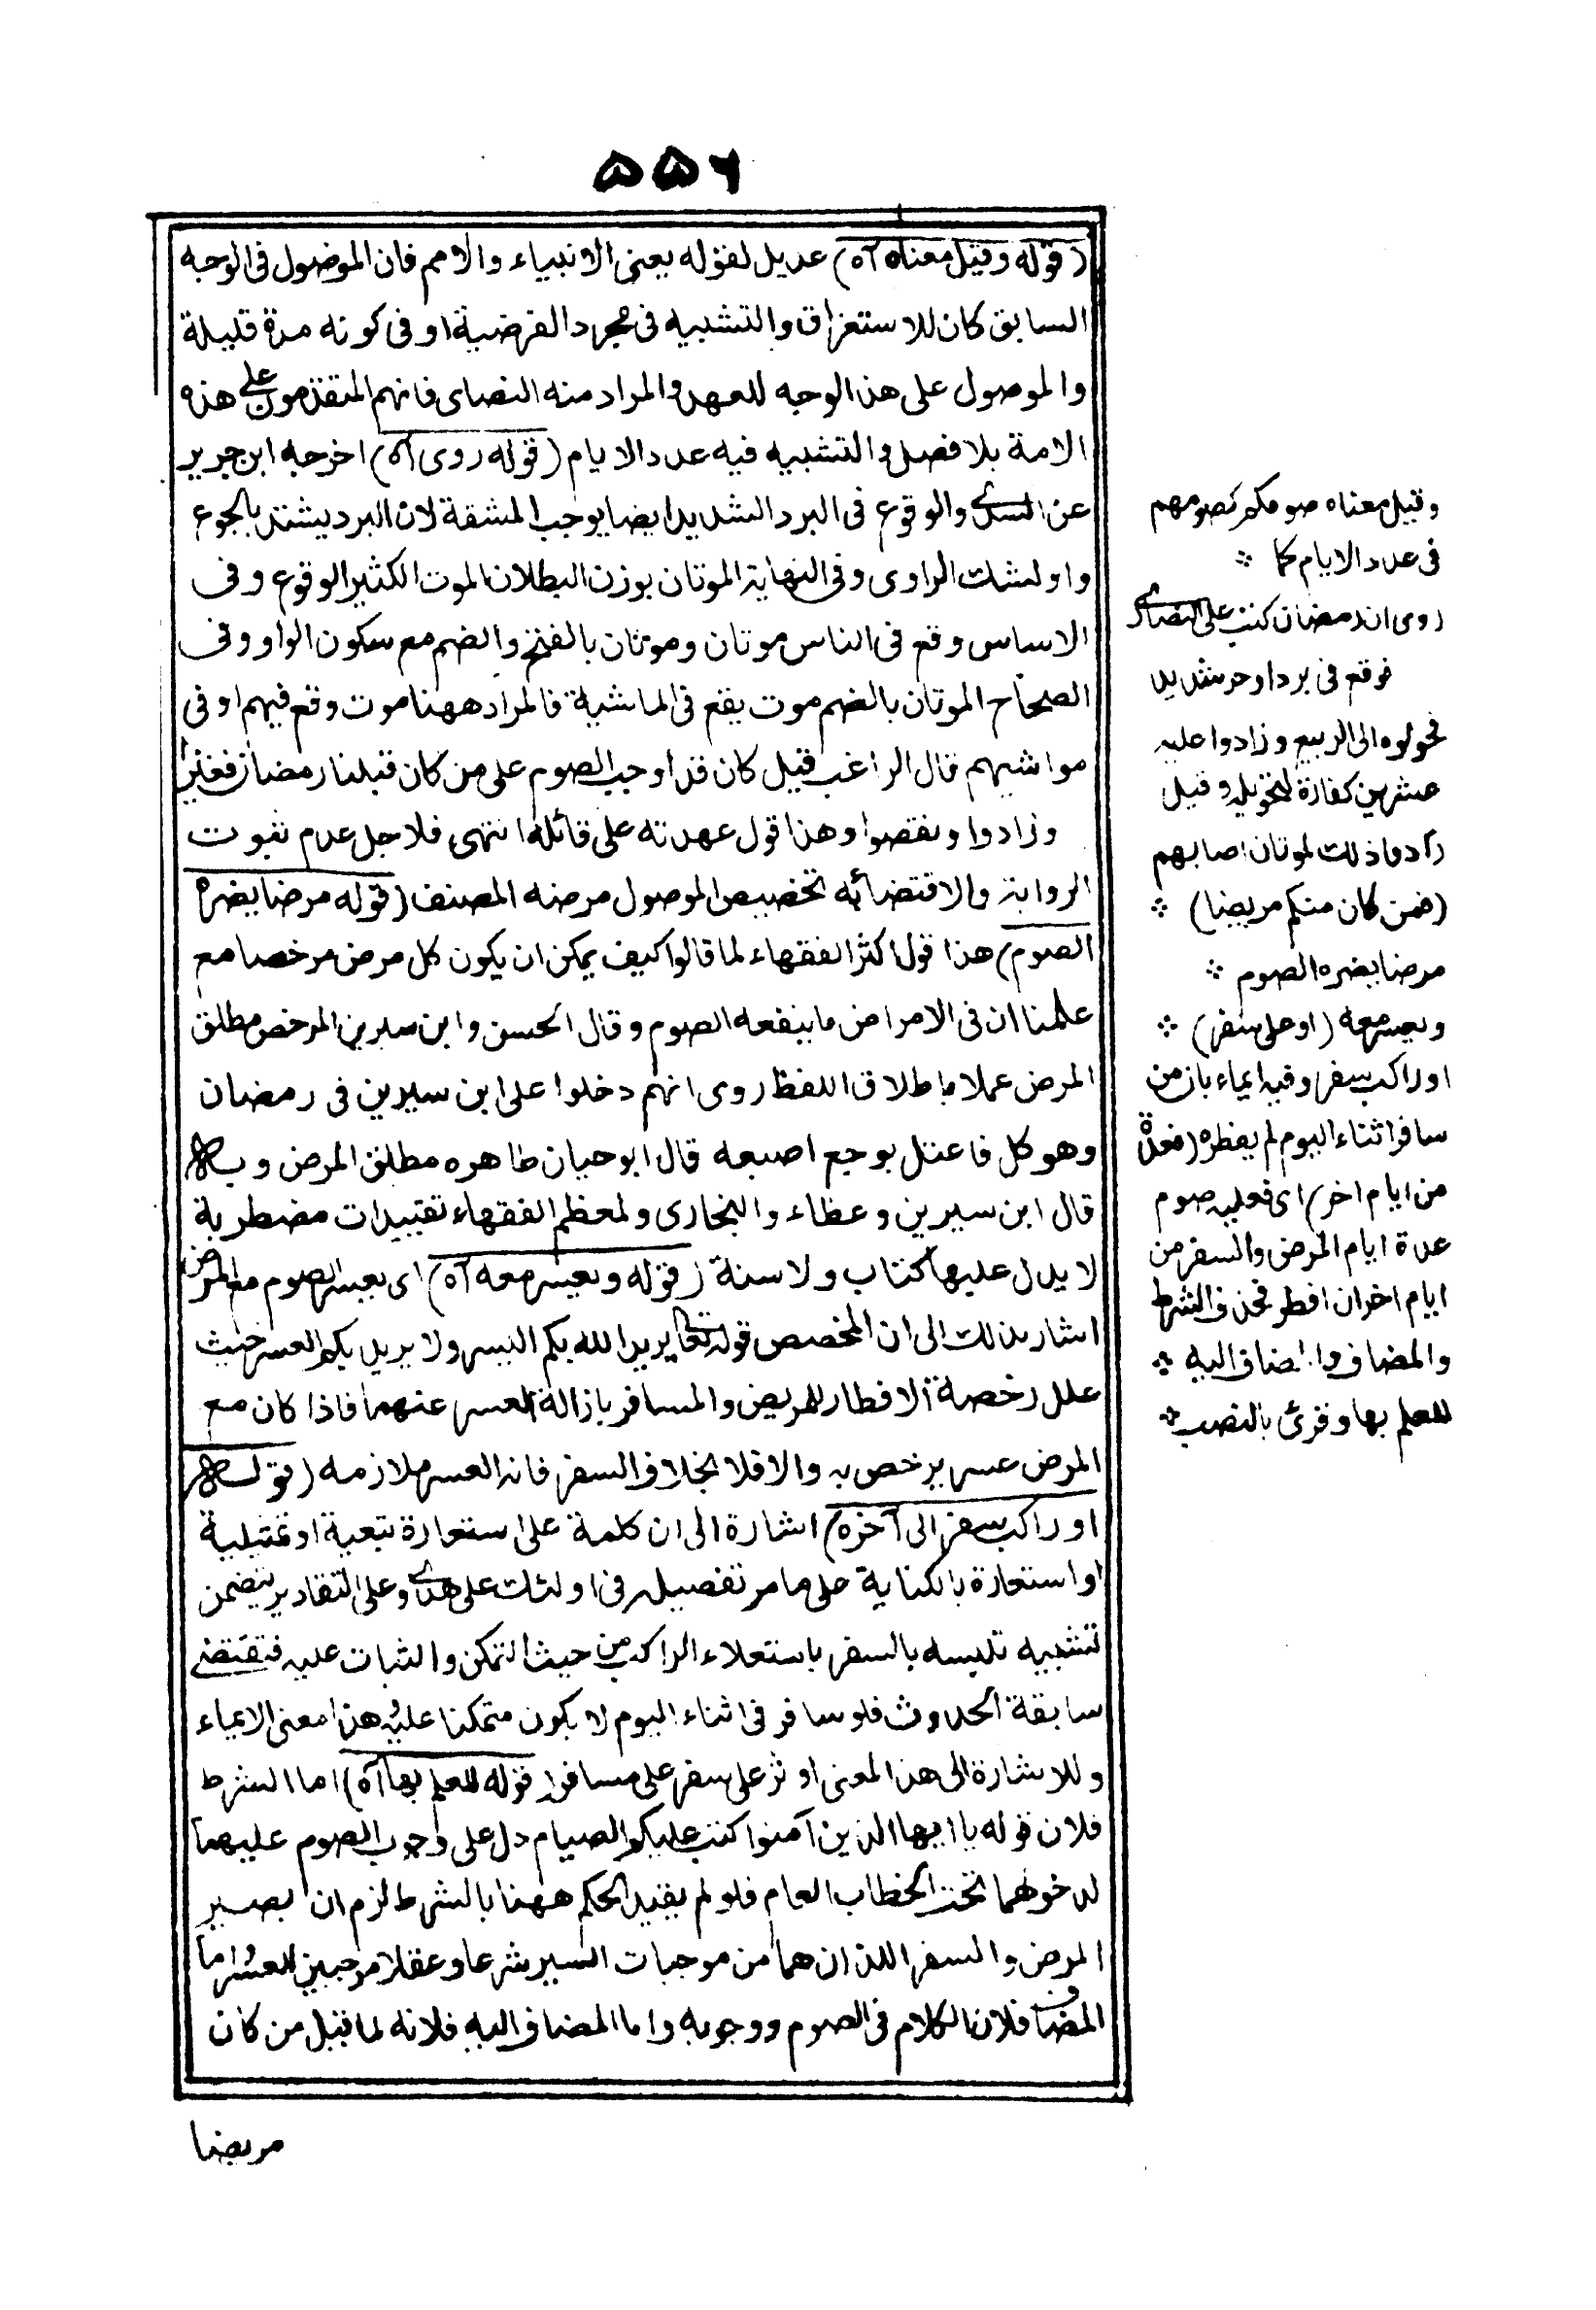 ٥٥٦
(قوله وقيل معناه آه) عديل لقوله يعنى الانبياء والامم فان الموصول فى الوجه
السابق كان للاستغراق والتشبيه فى مجرد الفرضية او فى كونه مدة قليلة
والموصول على هذا الوجه للعهد والمراد منه النصاى فانهم المتقدمون على هذه
الامة بلا فصل والتشبيه فيه عدد الايام (قوله روى آه) اخرجه ابن جرير
عن السدى والوقوع فى البرد الشديد ايضا يوجب المشقة لان البرد يشتد بالجوع
واو لشك الراوى وفى النهاية الموتان بوزن البطلان الموت الكثير الوقوع وفى
الاساس وقع فى الناس موتان وموتان بالفتح والضم مع سكون الواو وفى
الصحاح الموتان بالضم موت يقع فى الماشية فالمراد ههنا موت وقع فيهم او فى
مواشيهم قال الراغب قيل كان قد اوجب الصوم على من كان قبلنا رمضان فغيروا
وزادوا ونقصوا وهذا قول عهدته على قائله انتهى فلاجل عدم ثبوت
الرواية والاقتضائه تخصيص الموصول مرضه المصنف (قوله مرضا يضره
الصوم) هذا قول اكثر الفقهاء لما قالوا كيف يمكن ان يكون كل مرض مرخصا مع
علمنا ان فى الامراض ما ينفعه الصوم وقال الحسن وابن سيرين المرخص مطلق
المرض عملا باطلاق اللفظ روى انهم دخلوا على ابن سيرين فى رمضان
وهو كل فاعتل بوجع اصبعه قال ابو حيان ظاهره مطلق المرض وبه
قال ابن سيرين وعطاء والبخارى ولمعظم الفقهاء تقييدات مضطربة
لا يدل عليها كتاب ولا سنة (قوله ويعسر معه آه) اى يعسر الصوم مع المرض
اشار بذلك الى ان المخصص قوله تعا يريد الله بكم اليسر ولا يريد بكم العسر حيث
علل رخصة الافطار للمريض والمسافر بازالة العسر عنهما فاذا كان مع
المرض عسر يرخص به والا فلا بخلاف السفر فانه العسر ملازمه (قوله
او راكب سفر الى آخره) اشارة الى ان كلمة على استعارة تبعية او تمثيلية
او استعارة بالكناية على ما مر تفصيله فى اولئك على هدى وعلى التقادير يتضمن
تشبيه تلبسه بالسفر باستعلاء الراكب من حيث التمكن والثبات عليه فتقتضى
سابقة الحدوث فلو سافر فى اثناء اليوم لا يكون متمكنا عليه هذا معنى الايماء
وللاشارة الى هذا المعنى اوثر على سفر على مسافرا (قوله للعلم بها آه) اما الشرط
فلان قوله يا ايها الذين آمنوا كتب عليكم الصيام دل على وجوب الصوم عليهما
لدخولهما تحت الخطاب العام فلو لم يقيد الحكم ههنا بالشرط لزم ان يصير
المرض والسفر اللذان هما من موجبات اليسر شرعا وعقلا موجبين للعسر اما
المضاف فلان الكلام فى الصوم ووجوبه واما المضاف اليه فلانه لما قيل من كان
مريضا
وقيل معناه صومكم كصومهم
فى عدد الايام كما
روى ان رمضان كتب على النصارى
فوقع فى برد او حر شديد
فحولوه الى الربيع وزادوا عليه
عشرين كفارة لتحويله وقيل
زادوا ذلك لموتان اصابهم
(فمن كان منكم مريضا)
مرضا يضره الصوم
ويعسر معه (او على سفر)
او راكب سفر وفيه ايماء بان من
سافر اثناء اليوم لم يفطر (فعدة
من ايام اخر) اى فعليه صوم
عدة ايام المرض والسفر من
ايام اخر ان افطر فحذف الشرط
والمضاف والمضاف اليه
للعلم بها وقرئ بالنصب